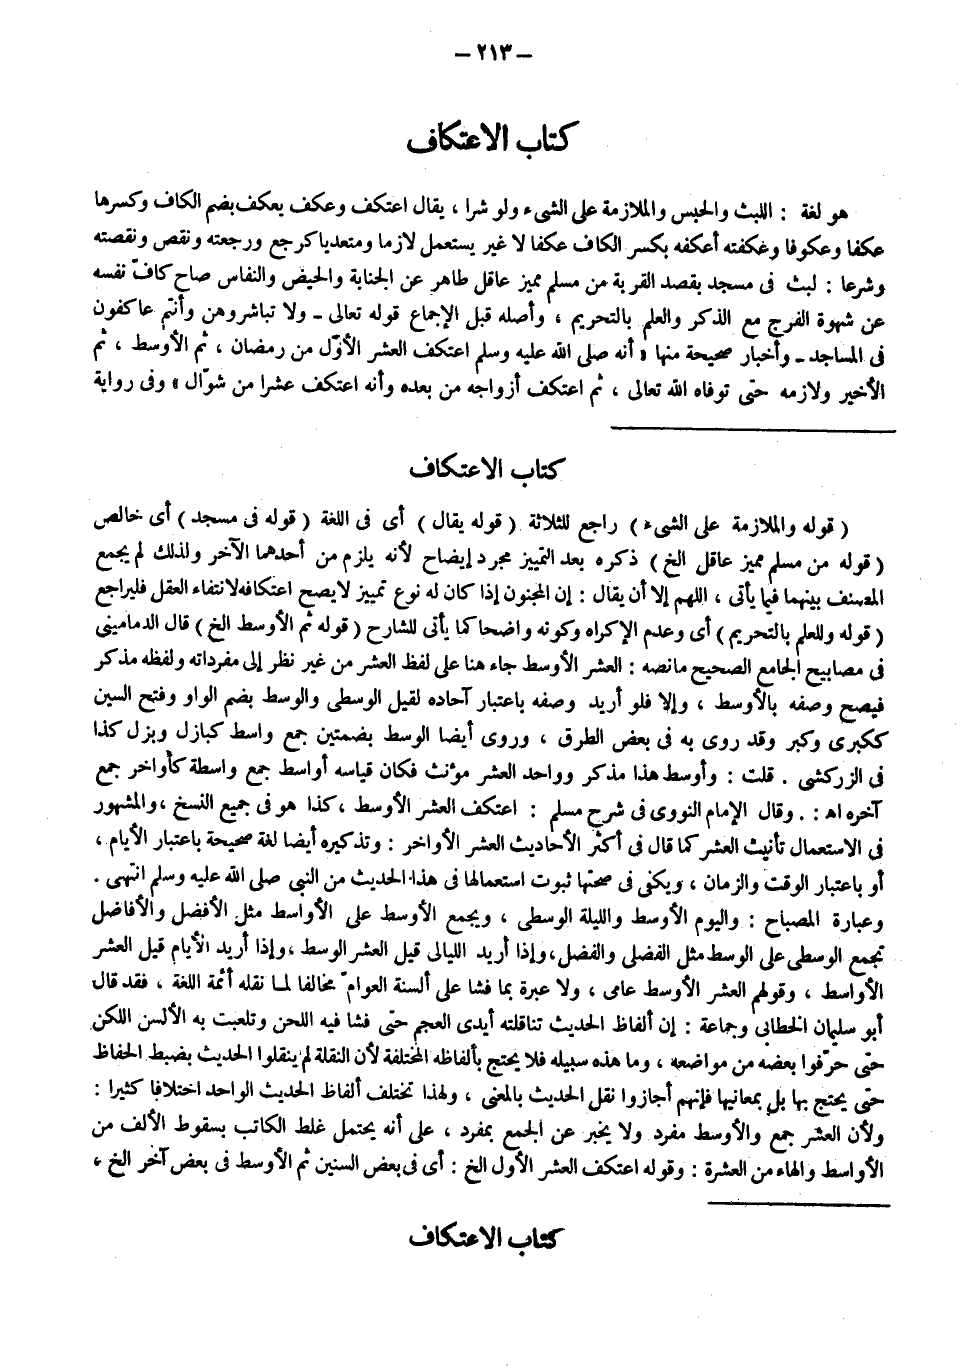 – ٢١٣ –
كتاب الاعتكاف
هو لغة : اللبث والحبس والملازمة على الشىء ولو شرا ، يقال اعتكف وعكف يعكف بضم الكاف وكسرها
عكفا وعكوفا وعكفته أعكفه بكسر الكاف عكفا لا غير يستعمل لازما ومتعديا كرجع ورجعته ونقص ونقصته
وشرعا : لبث فى مسجد بقصد القربة من مسلم مميز عاقل طاهر عن الجنابة والحيض والنفاس صاح كافّ نفسه
عن شهوة الفرج مع الذكر والعلم بالتحريم ، وأصله قبل الإجماع قوله تعالى ـ ولا تباشروهن وأنتم عاكفون
فى المساجد ـ وأخبار صحيحة منها « أنه صلى الله عليه وسلم اعتكف العشر الأوّل من رمضان ، ثم الأوسط ، ثم
الأخير ولازمه حتى توفاه الله تعالى ، ثم اعتكف أزواجه من بعده وأنه اعتكف عشرا من شوّال » وفى رواية
كتاب الاعتكاف
( قوله والملازمة على الشىء ) راجع للثلاثة ( قوله يقال ) أى فى اللغة ( قوله فى مسجد ) أى خالص
( قوله من مسلم مميز عاقل الخ ) ذكره بعد التمييز مجرد إيضاح لأنه يلزم من أحدهما الآخر ولذلك لم يجمع
المصنف بينهما فيما يأتى ، اللهم إلا أن يقال : إن المجنون إذا كان له نوع تمييز لا يصح اعتكافه لانتفاء العقل فليراجع
( قوله وللعلم بالتحريم ) أى وعدم الإكراه وكونه واضحا كما يأتى للشارح ( قوله ثم الأوسط الخ ) قال الدمامينى
فى مصابيح الجامع الصحيح مانصه : العشر الأوسط جاء هنا على لفظ العشر من غير نظر إلى مفرداته ولفظه مذكر
فيصح وصفه بالأوسط ، وإلا فلو أريد وصفه باعتبار آحاده لقيل الوسطى والوسط بضم الواو وفتح السين
ككبرى وكبر وقد روى به فى بعض الطرق ، وروى أيضا الوسط بضمتين جمع واسط كبازل وبزل كذا
فى الزركشى . قلت : وأوسط هذا مذكر وواحد العشر مؤنث فكان قياسه أواسط جمع واسطة كأواخر جمع
آخره اه : . وقال الإمام النووى فى شرح مسلم : اعتكف العشر الأوسط ، كذا هو فى جميع النسخ ، والمشهور
فى الاستعمال تأنيث العشر كما قال فى أكثر الأحاديث العشر الأواخر : وتذكيره أيضا لغة صحيحة باعتبار الأيام ،
أو باعتبار الوقت والزمان ، ويكفى فى صحتها ثبوت استعمالها فى هذا الحديث من النبى صلى الله عليه وسلم انتهى .
وعبارة المصباح : واليوم الأوسط والليلة الوسطى ، ويجمع الأوسط على الأواسط مثل الأفضل والأفاضل
تجمع الوسطى على الوسط مثل الفضلى والفضل ، وإذا أريد الليالى قيل العشر الوسط ، وإذا أريد الأيام قيل العشر
الأواسط ، وقولهم العشر الأوسط عامى ، ولا عبرة بما فشا على ألسنة العوامّ مخالفا لما نقله أئمة اللغة ، فقد قال
أبو سليمان الخطابى وجماعة : إن ألفاظ الحديث تناقلته أيدى العجم حتى فشا فيه اللحن وتلعبت به الألسن اللكن
حتى حرّفوا بعضه من مواضعه ، وما هذه سبيله فلا يحتج بألفاظه المختلفة لأن النقلة لم ينقلوا الحديث بضبط الحفاظ
حتى يحتج بها بل بمعانيها فإنهم أجازوا نقل الحديث بالمعنى ، ولهذا تختلف ألفاظ الحديث الواحد اختلافا كثيرا :
ولأن العشر جمع والأوسط مفرد ولا يخبر عن الجمع بمفرد ، على أنه يحتمل غلط الكاتب بسقوط الألف من
الأواسط والهاء من العشرة : وقوله اعتكف العشر الأول الخ : أى فى بعض السنين ثم الأوسط فى بعض آخر الخ ،
كتاب الاعتكاف